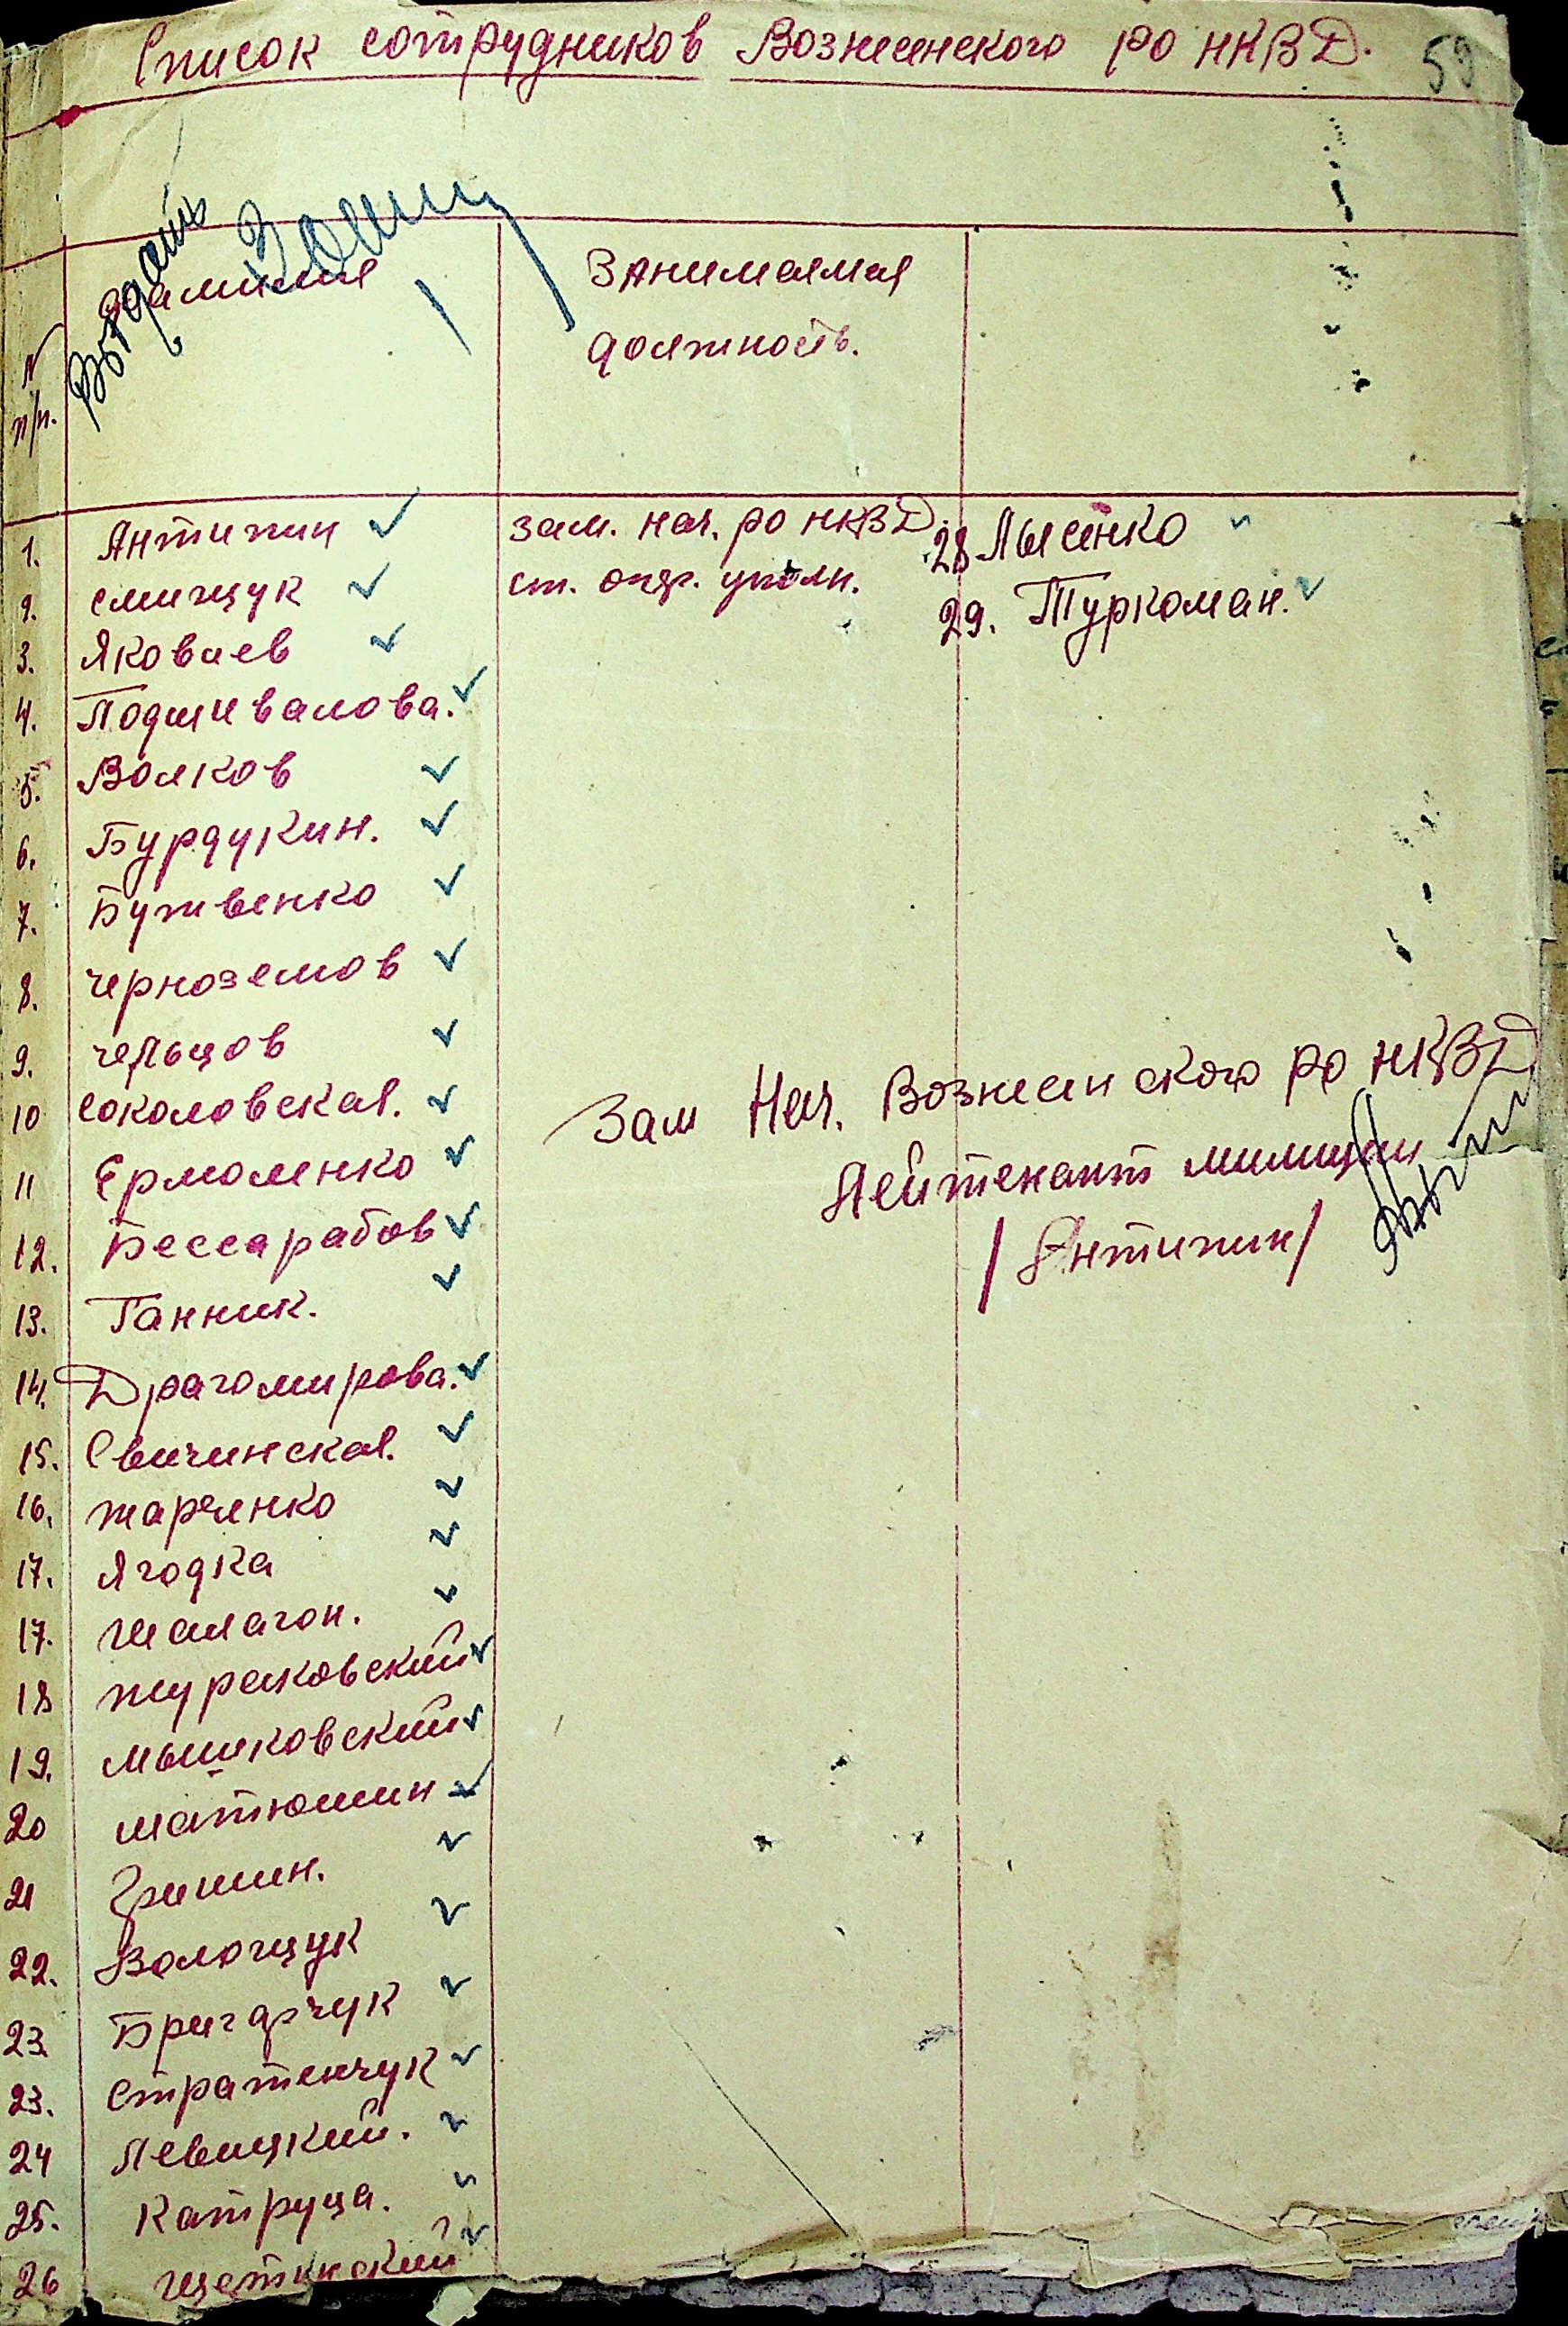 Список сотрудников Вознесенского РО НКВД.
59
Выдать
N п/п.
Фамилия
Занимаемая
должность.
1. Антипин зам. нач. РО НКВД.
2. Смищук ст. опер. уполн.
3. Яковлев
4. Подшивалова.
5. Волков
6. Бурдукин.
7. Бутвенко
8. Черноземов
9. Чельцов
10 Соколовская.
11 Ермоленко
12. Бессарабов
13. Ганник.
14. Драгомирова.
15. Свичинская.
16. Жаренко
17. Ягодка
17. Шалагон.
18 Жураковский
19. Мышковский
20 Матюшин
21 Гришин.
22. Волощук
23 Бригарчук
23. Стратенчук
24 Левицкий.
25. Катруца.
26 Щетинский
28 Лысенко
29. Туркоман.
Зам Нач. Вознесенского РО НКВД
Лейтенант милиции
/Антипин/